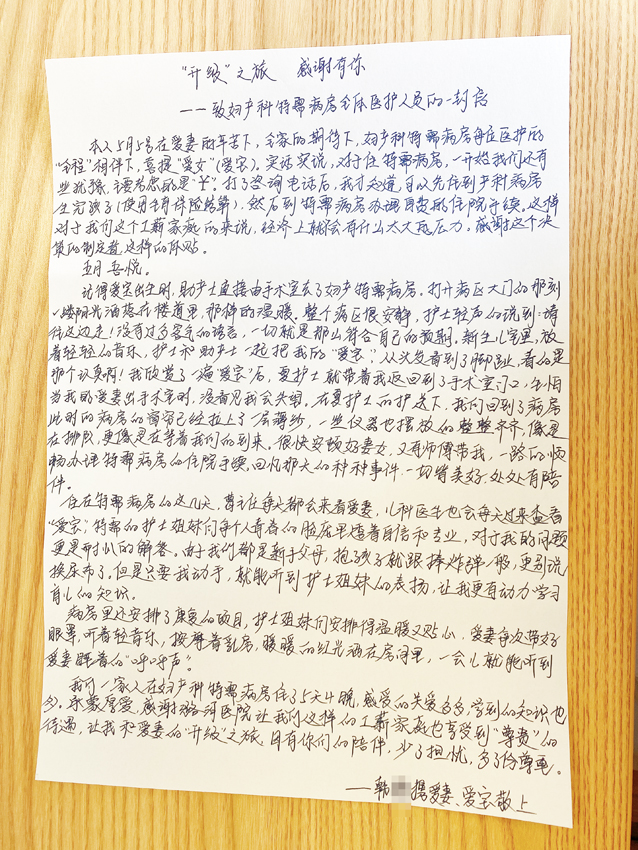 “升级”之旅 感谢有你
——致妇产科特需病房全体医护人员的一封信
本人5月5号在爱妻的辛苦下，全家的期待下，妇产科特需病房每位医护的
“全程”相伴下，喜提“爱女”（爱宝）。实话实说，对于住特需病房，一开始我们还有
些犹豫，主要考虑的是“¥”。打了咨询电话后，我才知道，可以先住到产科病房
生完孩子（使用生育保险结算），然后到特需病房办理自费的住院手续，这样
对于我们这个工薪家庭的来说，经济上就会有什么太大压力。感谢这个决
策的制定者，这样的体贴。
五月 吾悦。
记得爱宝出生时，助产士直接由手术室去了妇产特需病房。打开病区大门的那刻
一缕阳光洒落在楼道里，那样的温暖。整个病区很安静，护士轻声的说到：请
往这边走！没有过多客气的语言，一切就是那么符合自己的预期。新生儿室里，放
着轻轻的音乐，护士和助产士一起把我的“爱宝”，从头发看到了脚趾，看的是
那个认真啊！我欣赏了一遍“爱宝”后，夏护士就带着我返回到了手术室门口，生怕
当我的爱妻出手术室时，没看见我会失望。在夏护士的护送下，我们回到了病房
此时的病房的窗帘已经拉上了一层薄纱，一些仪器也摆放的整整齐齐，像是
在排队，更像是在等着我们的到来。很快安顿好妻女，又有师傅带我，一路的快
畅办理特需病房的住院手续，回忆那天的种种事件，一切皆美好，处处有陪
伴。
住在特需病房的这几天，曹主任每天都会来看爱妻，儿科医生也会每天过来查看
“爱宝”，特需的护士姐妹们每个人青春的脸庞里透着自信和专业，对于我的问题
更是耐心的解答。由于我们都是新手父母，抱了孩子就跟捧炸弹一般，更别说
换尿布了。但是只要我动手，就能听到护士姐妹的表扬，让我更有动力学习
育儿的知识。
病房里还安排了康复的项目，护士姐妹们安排得温暖又贴心，爱妻每次带好
眼罩，听着轻音乐，按摩着乳房，暖暖的红光洒在房间里，一会儿就能听到
爱妻睡着的“呼呼声”。
我们一家人在妇产科特需病房住了5天4晚，感受的关爱多多，学到的知识也
多。承蒙厚爱，感谢 河医院让我们这样的工薪家庭也享受到“尊贵”的
待遇，让我和爱妻的“升级”之旅，因有你们的陪伴，少了担忧，多了份尊重。
——韩 携爱妻、爱宝敬上